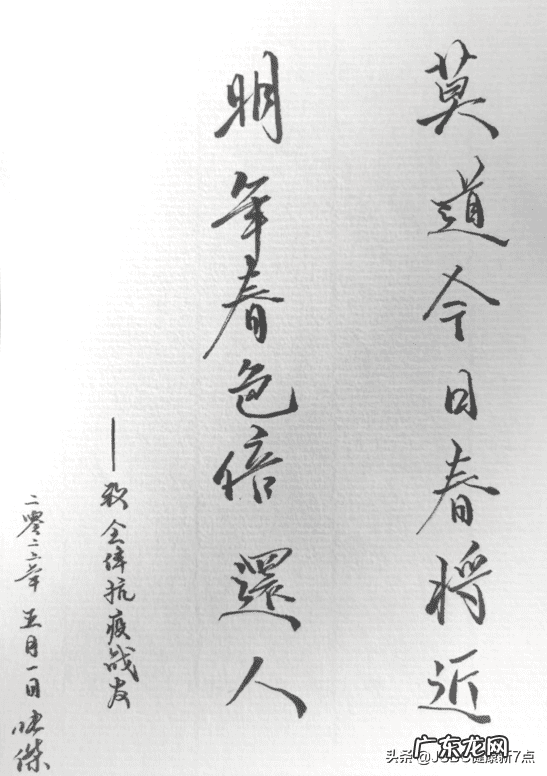 莫道今日春将近
明年春色倍還人
——致全体抗疫战友
二零二二年 五月一日
头条
广东龙网